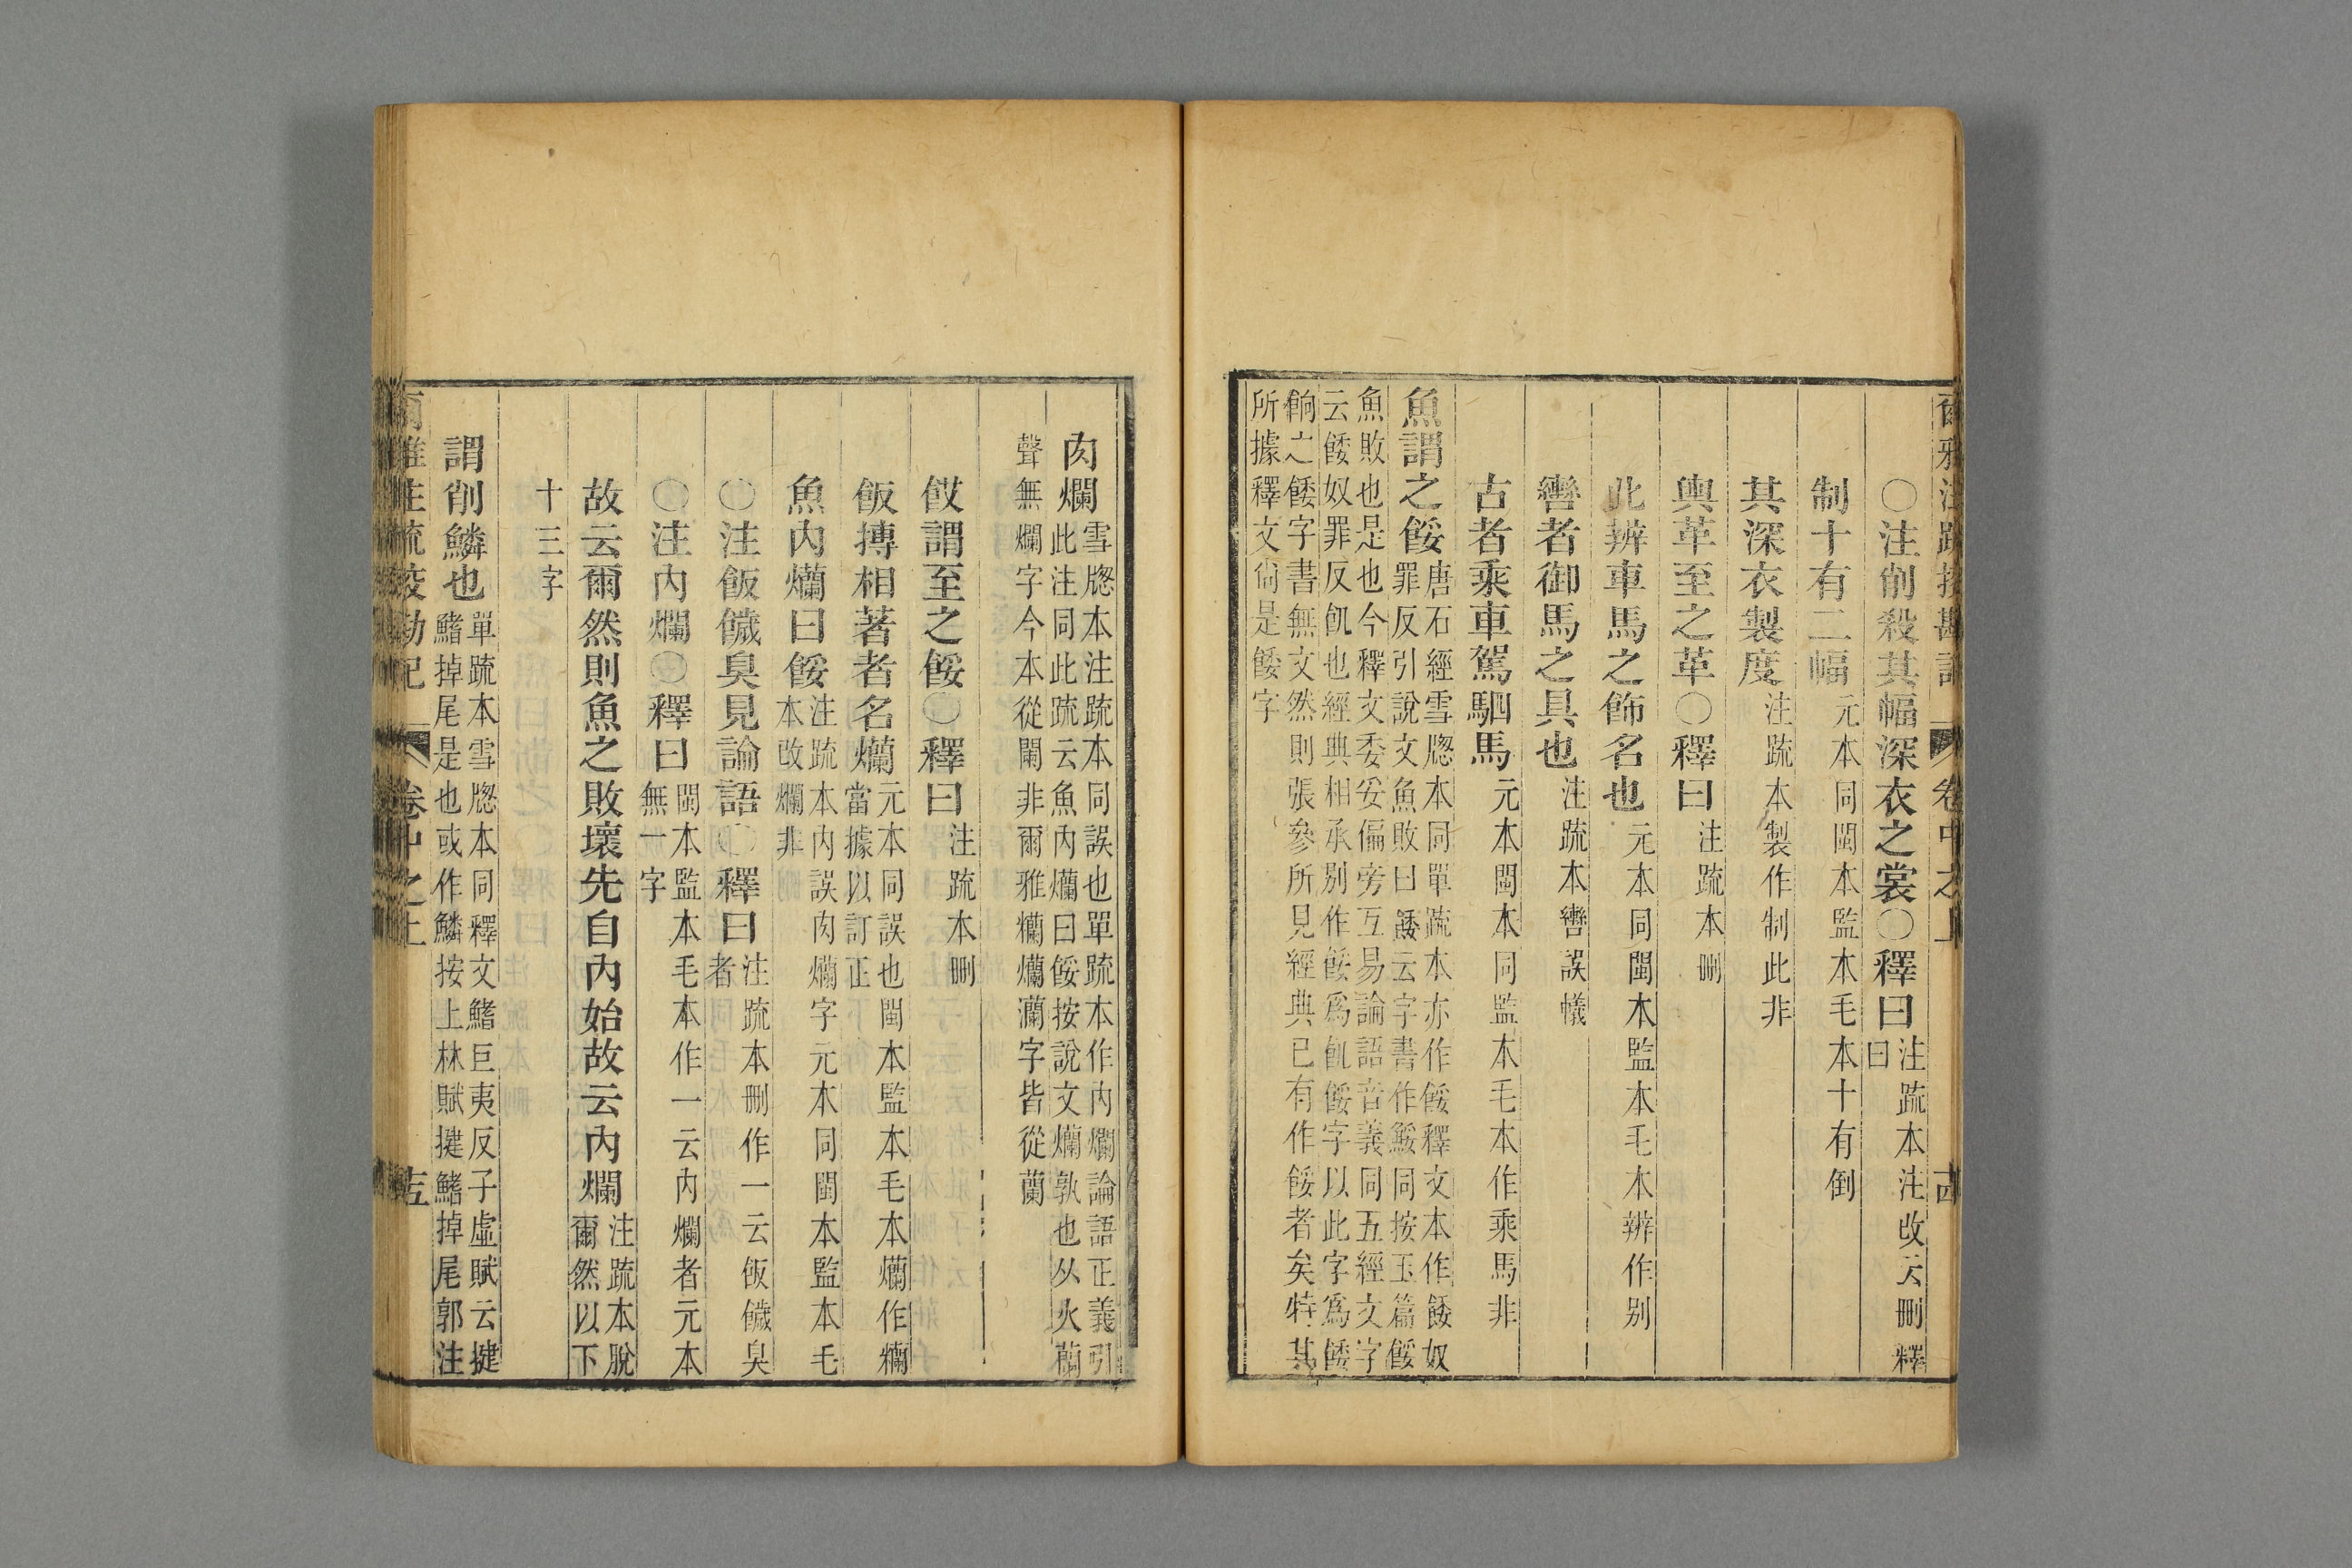 爾雅注疏挍勘記 卷中之上 古
○注削殺其幅深衣之裳○釋曰注疏本注改云刪釋曰
制十有二幅元本同閩本監本毛本十有倒
其深衣製度注疏本製作制此非
輿革至之革○釋曰注疏本刪
此辨車馬之飾名也元本同閩本監本毛本辨作別
轡者御馬之具也注疏本轡誤幟
古者乘車駕駟馬元本閩本同監本毛本作乘馬非
魚謂之餒唐石經雪牎本同單疏本亦作餒釋文本作餧奴
罪反引說文魚敗曰餧云字書作鮾同按玉篇餒
魚敗也是也今釋文委妥偏旁互易論語音義同五經文字
云餧奴罪反飢也經典相承別作餒爲飢餒字以此字爲餧
餉之餧字書無文然則張參所見經典已有作餒者矣特其
所據釋文尙是餧字
肉爛雪牎本注疏本同誤也單疏本作內爛論語正義引
此注同此疏云魚內爛曰餒按說文爤孰也从火蘭
聲無爛字今本從闌非爾雅糷爤灡字皆從蘭
餀謂至之餒○釋曰注疏本刪
飯摶相著者名糷元本同誤也閩本監本毛本爤作糷
當據以訂正
魚內爤曰餒注疏本內誤肉爤字元本同閩本監本毛
本改爛非
○注飯饖臭見論語○釋曰注疏本刪作一云飯饖臭
者
○注內爛○釋曰閩本監本毛本作一云內爛者元本
無一字
故云爾然則魚之敗壞先自內始故云內爛注疏本脫
爾然以下
十三字
謂削鱗也單疏本雪牎本同釋文鰭巨夷反子虛賦云揵
鰭掉尾是也或作鱗按上林賦揵鰭掉尾郭注
爾雅注疏挍勘記 卷中之上 去